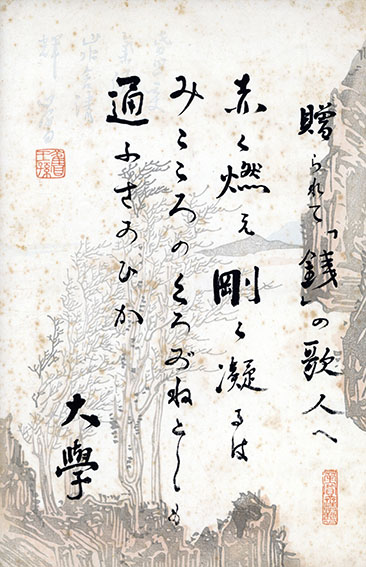 贈られて「鐵」の歌人へ
赤く燃え剛く凝るは
みこころのくろがねとしも
通ふさかひか
大學